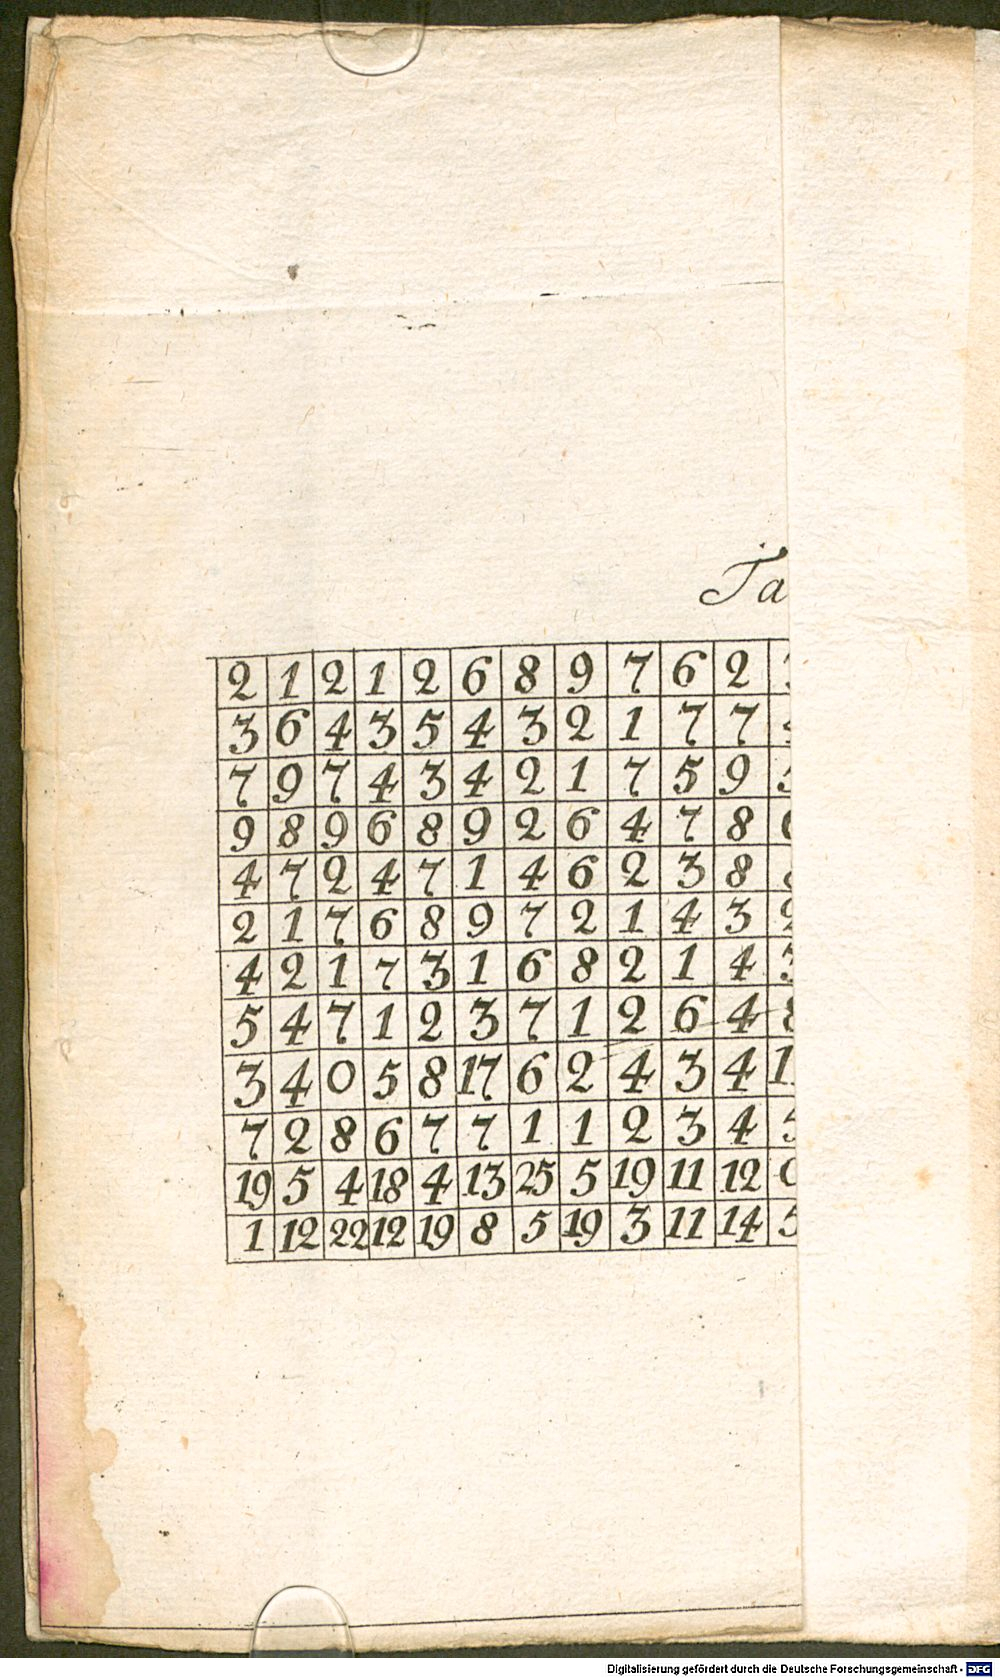 Ta
2 1 2 1 2 6 8 9 7 6 2
3 6 4 3 5 4 3 2 1 7 7
7 9 7 4 3 4 2 1 7 5 9
9 8 9 6 8 9 2 6 4 7 8
4 7 2 4 7 1 4 6 2 3 8
2 1 7 6 8 9 7 2 1 4 3
4 2 1 7 3 1 6 8 2 1 4
5 4 7 1 2 3 7 1 2 6 4
3 4 0 5 8 17 6 2 4 3 4
7 2 8 6 7 7 1 1 2 3 4
19 5 4 18 4 13 25 5 19 11 12
1 12 22 12 19 8 5 19 3 11 14
Digitalisierung gefördert durch die Deutsche Forschungsgemeinschaft - DFG